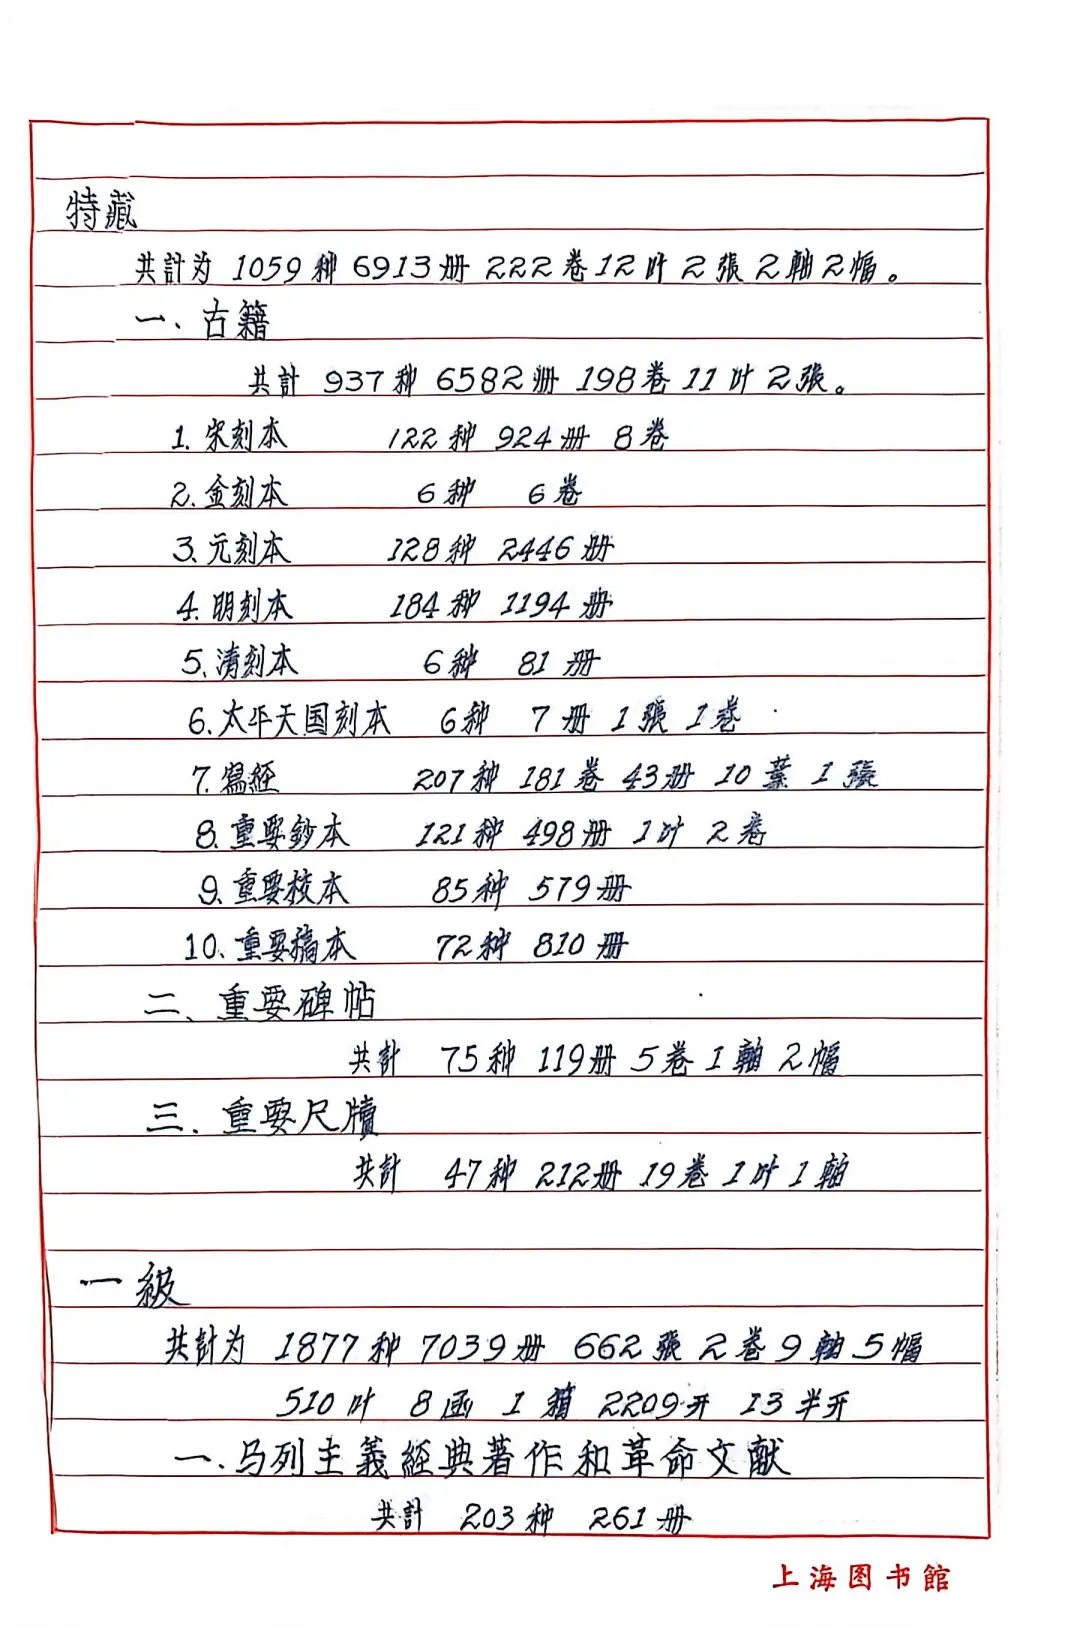 特藏
共計为 1059 种 6913 册 222 卷 12 叶 2 張 2 軸 2 幅。
一、古籍
共計 937 种 6582 册 198 卷 11 叶 2 張。
1. 宋刻本 122 种 924 册 8 卷
2. 金刻本 6 种 6 卷
3. 元刻本 128 种 2446 册
4. 明刻本 184 种 1194 册
5. 清刻本 6 种 81 册
6. 太平天国刻本 6 种 7 册 1 張 1 卷
7. 寫經 207 种 181 卷 43 册 10 葉 1 張
8. 重要鈔本 121 种 498 册 1 叶 2 卷
9. 重要校本 85 种 579 册
10. 重要稿本 72 种 810 册
二、重要碑帖
共計 75 种 119 册 5 卷 1 軸 2 幅
三. 重要尺牘
共計 47 种 212 册 19 卷 1 叶 1 軸
一級
共計为 1877 种 7039 册 662 張 2 卷 9 軸 5 幅
510 叶 8 函 1 箱 2209 开 13 半开
一. 马列主義經典著作和革命文献
共計 203 种 261 册
上海图书館